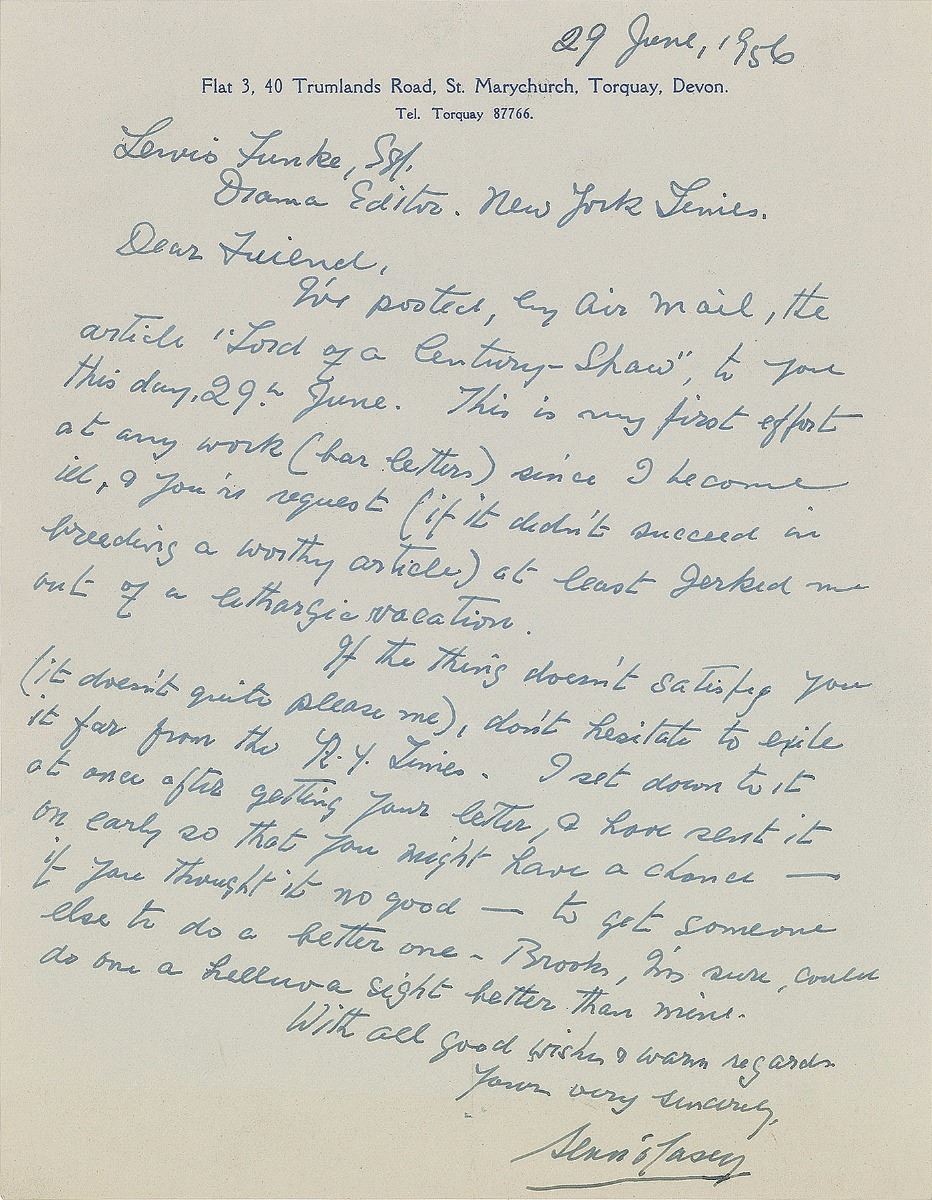 29 June, 1956
Flat 3, 40 Trumlands Road, St. Marychurch, Torquay, Devon.
Tel. Torquay 87766.
Lewis Funke, Esq.
Drama Editor. New York Times.
Dear Friend,
I've posted, by Air Mail, the
article "Lord of a Century - Shaw", to you
this day, 29th June. This is my first effort
at any work (bar letters) since I become
ill, & you're request (if it didn't succeed in
breeding a worthy article) at least Jerked me
out of a lethargic vacation.
If the thing doesn't satisfy you
(it doesn't quite please me), don't hesitate to exile
it far from the N.Y. Times. I set down to it
at once after getting your letter, & have sent it
on early so that you might have a chance —
if you thought it no good — to get someone
else to do a better one - Brooks, I'm sure, could
do one a helluva sight better than mine.
With all good wishes & warm regards
Yours very sincerely,
Sean O'Casey